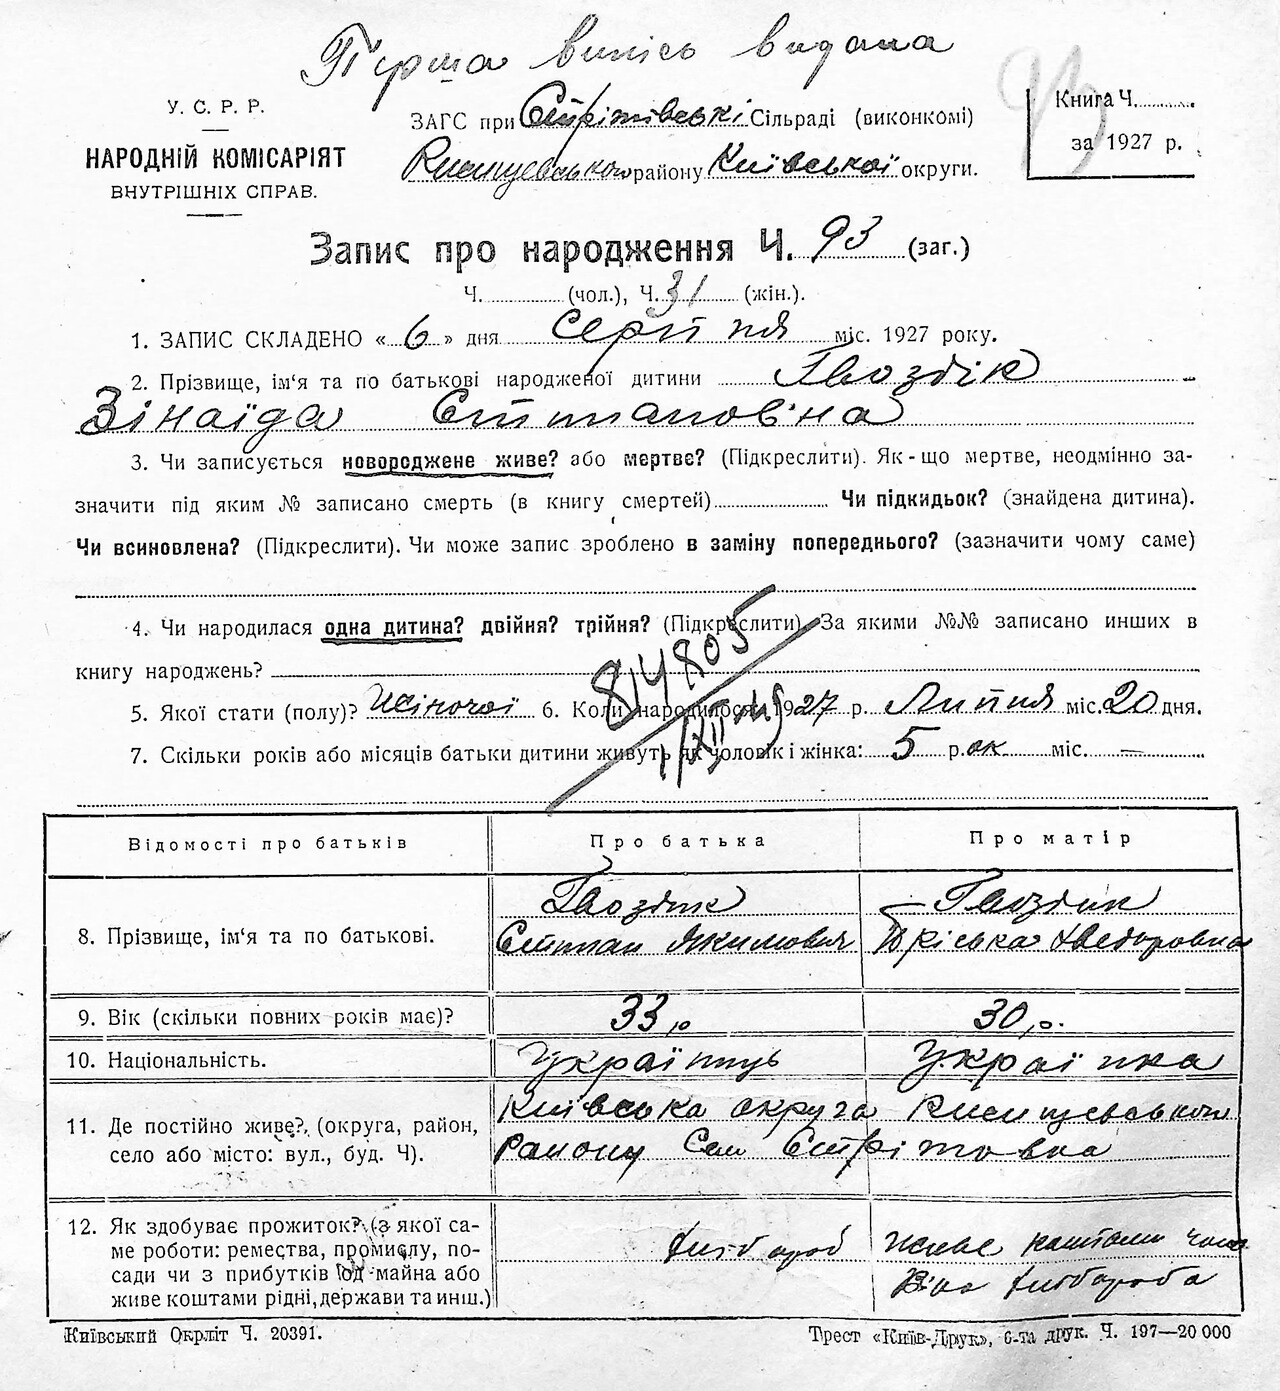 Перша випісь видана
У. С. Р. Р.
НАРОДНІЙ КОМІСАРІЯТ
ВНУТРІШНІХ СПРАВ.
ЗАГС при Стрітівські Сільраді (виконкомі)
району Київської округи.
93
Книга Ч.
за 1927 р.
Запис про народження Ч. 93 (заг.)
Ч. (чол.), Ч. 31 (жін.).
1. ЗАПИС СКЛАДЕНО « 6 » дня Серпня міс. 1927 року.
2. Прізвище, ім'я та по батькові народженої дитини Гвоздік
Зінаїда Степановна
3. Чи записується новороджене живе? або мертве? (Підкреслити). Як-що мертве, неодмінно за-
значити під яким № записано смерть (в книгу смертей) Чи підкидьок? (знайдена дитина).
Чи всиновлена? (Підкреслити). Чи може запис зроблено в заміну попереднього? (зазначити чому саме)
4. Чи народилася одна дитина? двійня? трійня? (Підкреслити). За якими №№ записано инших в
книгу народжень?
814805
5. Якої стати (полу)? Жіночої 6. Коли народилося 1927 р. Липня міс. 20 дня.
7. Скільки років або місяців батьки дитини живуть як чоловік і жінка: 5 рок міс. —
Відомості про батьків
Про батька
Про матір
8. Прізвище, ім'я та по батькові.
Гвоздик
Степан Якимович
Гвоздик
Пріська Хведоровна
9. Вік (скільки повних років має)?
33
30
10. Національність.
Українець
Українка
11. Де постійно живе? (округа, район,
село або місто: вул., буд. Ч).
Київська округа
району Село Стрітовка
12. Як здобуває прожиток? (з якої са-
ме роботи: ремества, промислу, по-
сади чи з прибутків од майна або
живе коштами рідні, держави та инш.)
хлібороб
Живе коштами чоло
віка хлібороба
Київський Окрліт Ч. 20391.
Трест «Київ-Друк», 6-та друк. Ч. 197—20 000